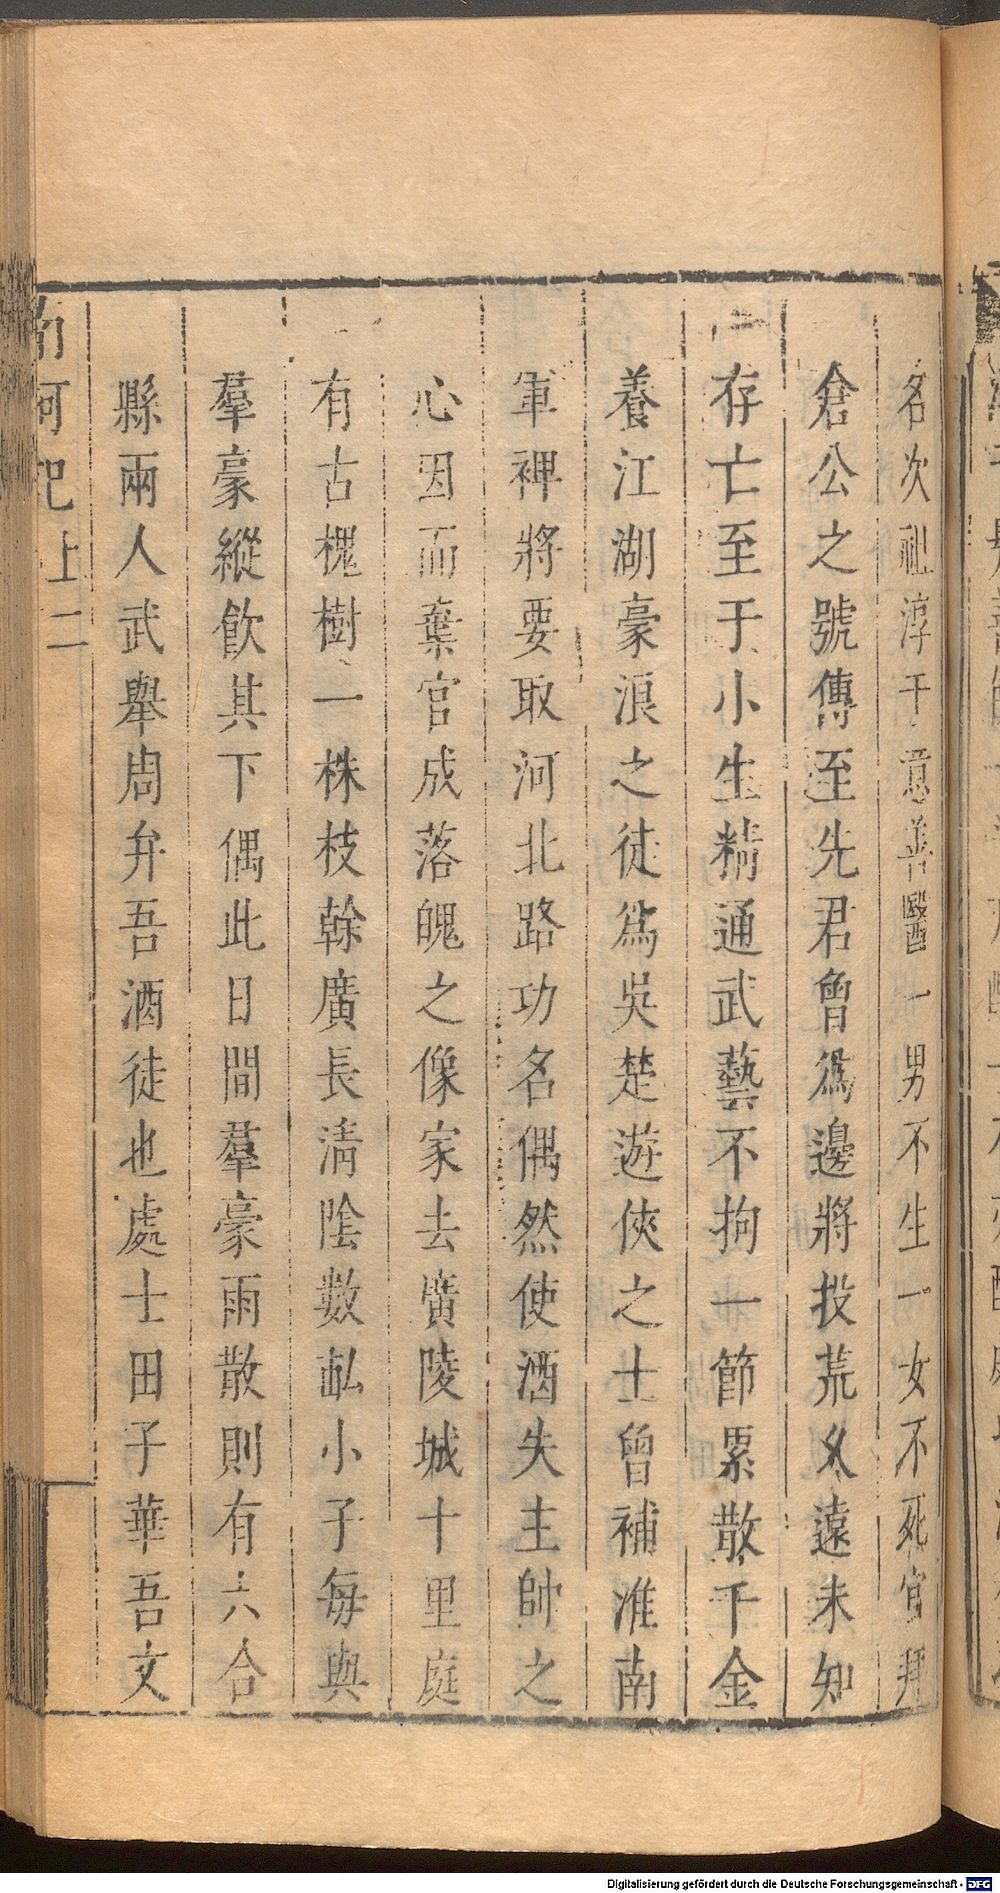 名次祖淳于意善醫一男不生一女不死官拜
倉公之號傳至先君曾爲邊將投荒久遠未知
存亡至于小生精通武藝不拘一節累散千金
養江湖豪浪之徒爲吳楚遊俠之士曾補淮南
軍裨將要取河北路功名偶然使酒失主帥之
心因而棄官成落魄之像家去廣陵城十里庭
有古槐樹一株枝幹廣長清陰數畝小子每與
羣豪縱飲其下偶此日間羣豪雨散則有六合
縣兩人武舉周弁吾酒徒也處士田子華吾文
南柯記上 二
Digitalisierung gefördert durch die Deutsche Forschungsgemeinschaft - DFG